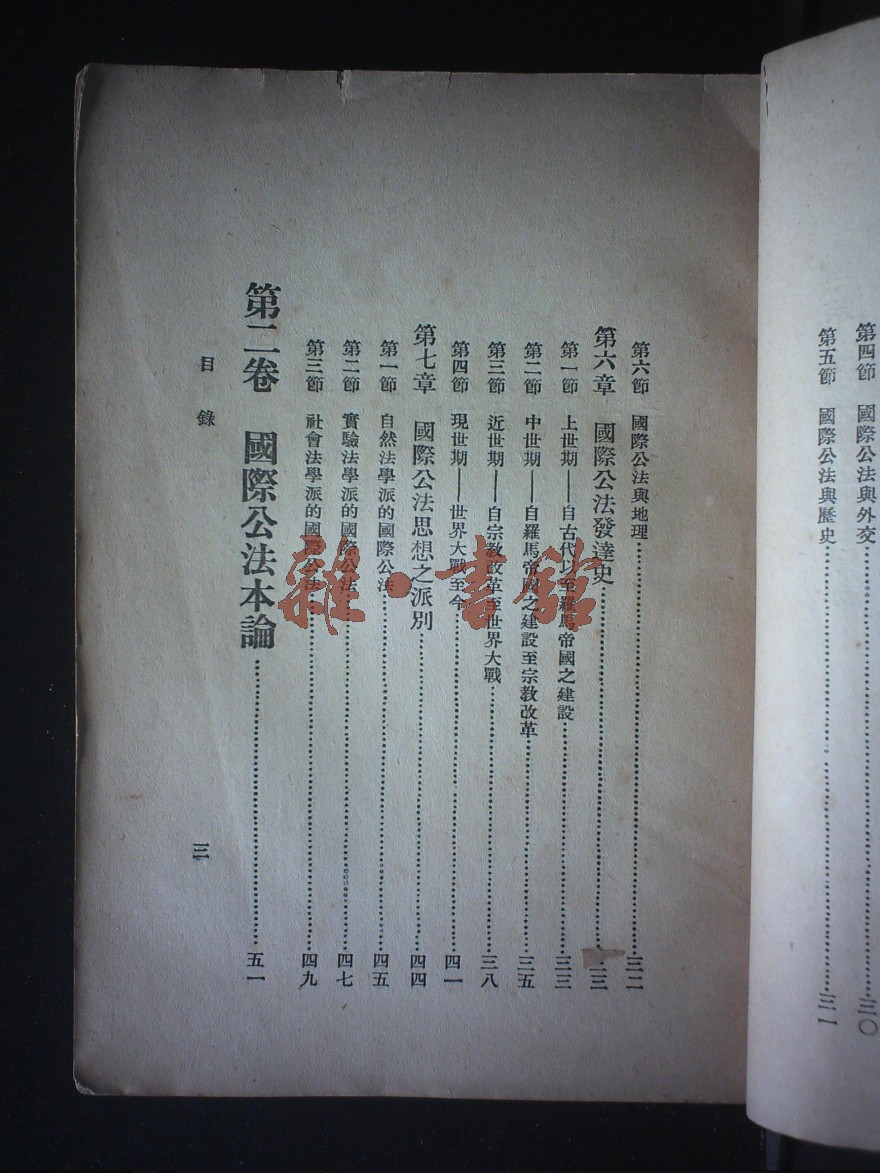 第四節 國際公法與外交……三〇
第五節 國際公法與歷史……三一
第六節 國際公法與地理……三二
第六章 國際公法發達史……三三
第一節 上世期——自古代以至羅馬帝國之建設……三三
第二節 中世期——自羅馬帝國之建設至宗教改革……三五
第三節 近世期——自宗教改革至世界大戰……三八
第四節 現世期——世界大戰至今……四一
第七章 國際公法思想之派別……四四
第一節 自然法學派的國際公法……四五
第二節 實驗法學派的國際公法……四七
第三節 社會法學派的國際公法……四九
第二卷 國際公法本論……五一
目錄
三
雜·書館